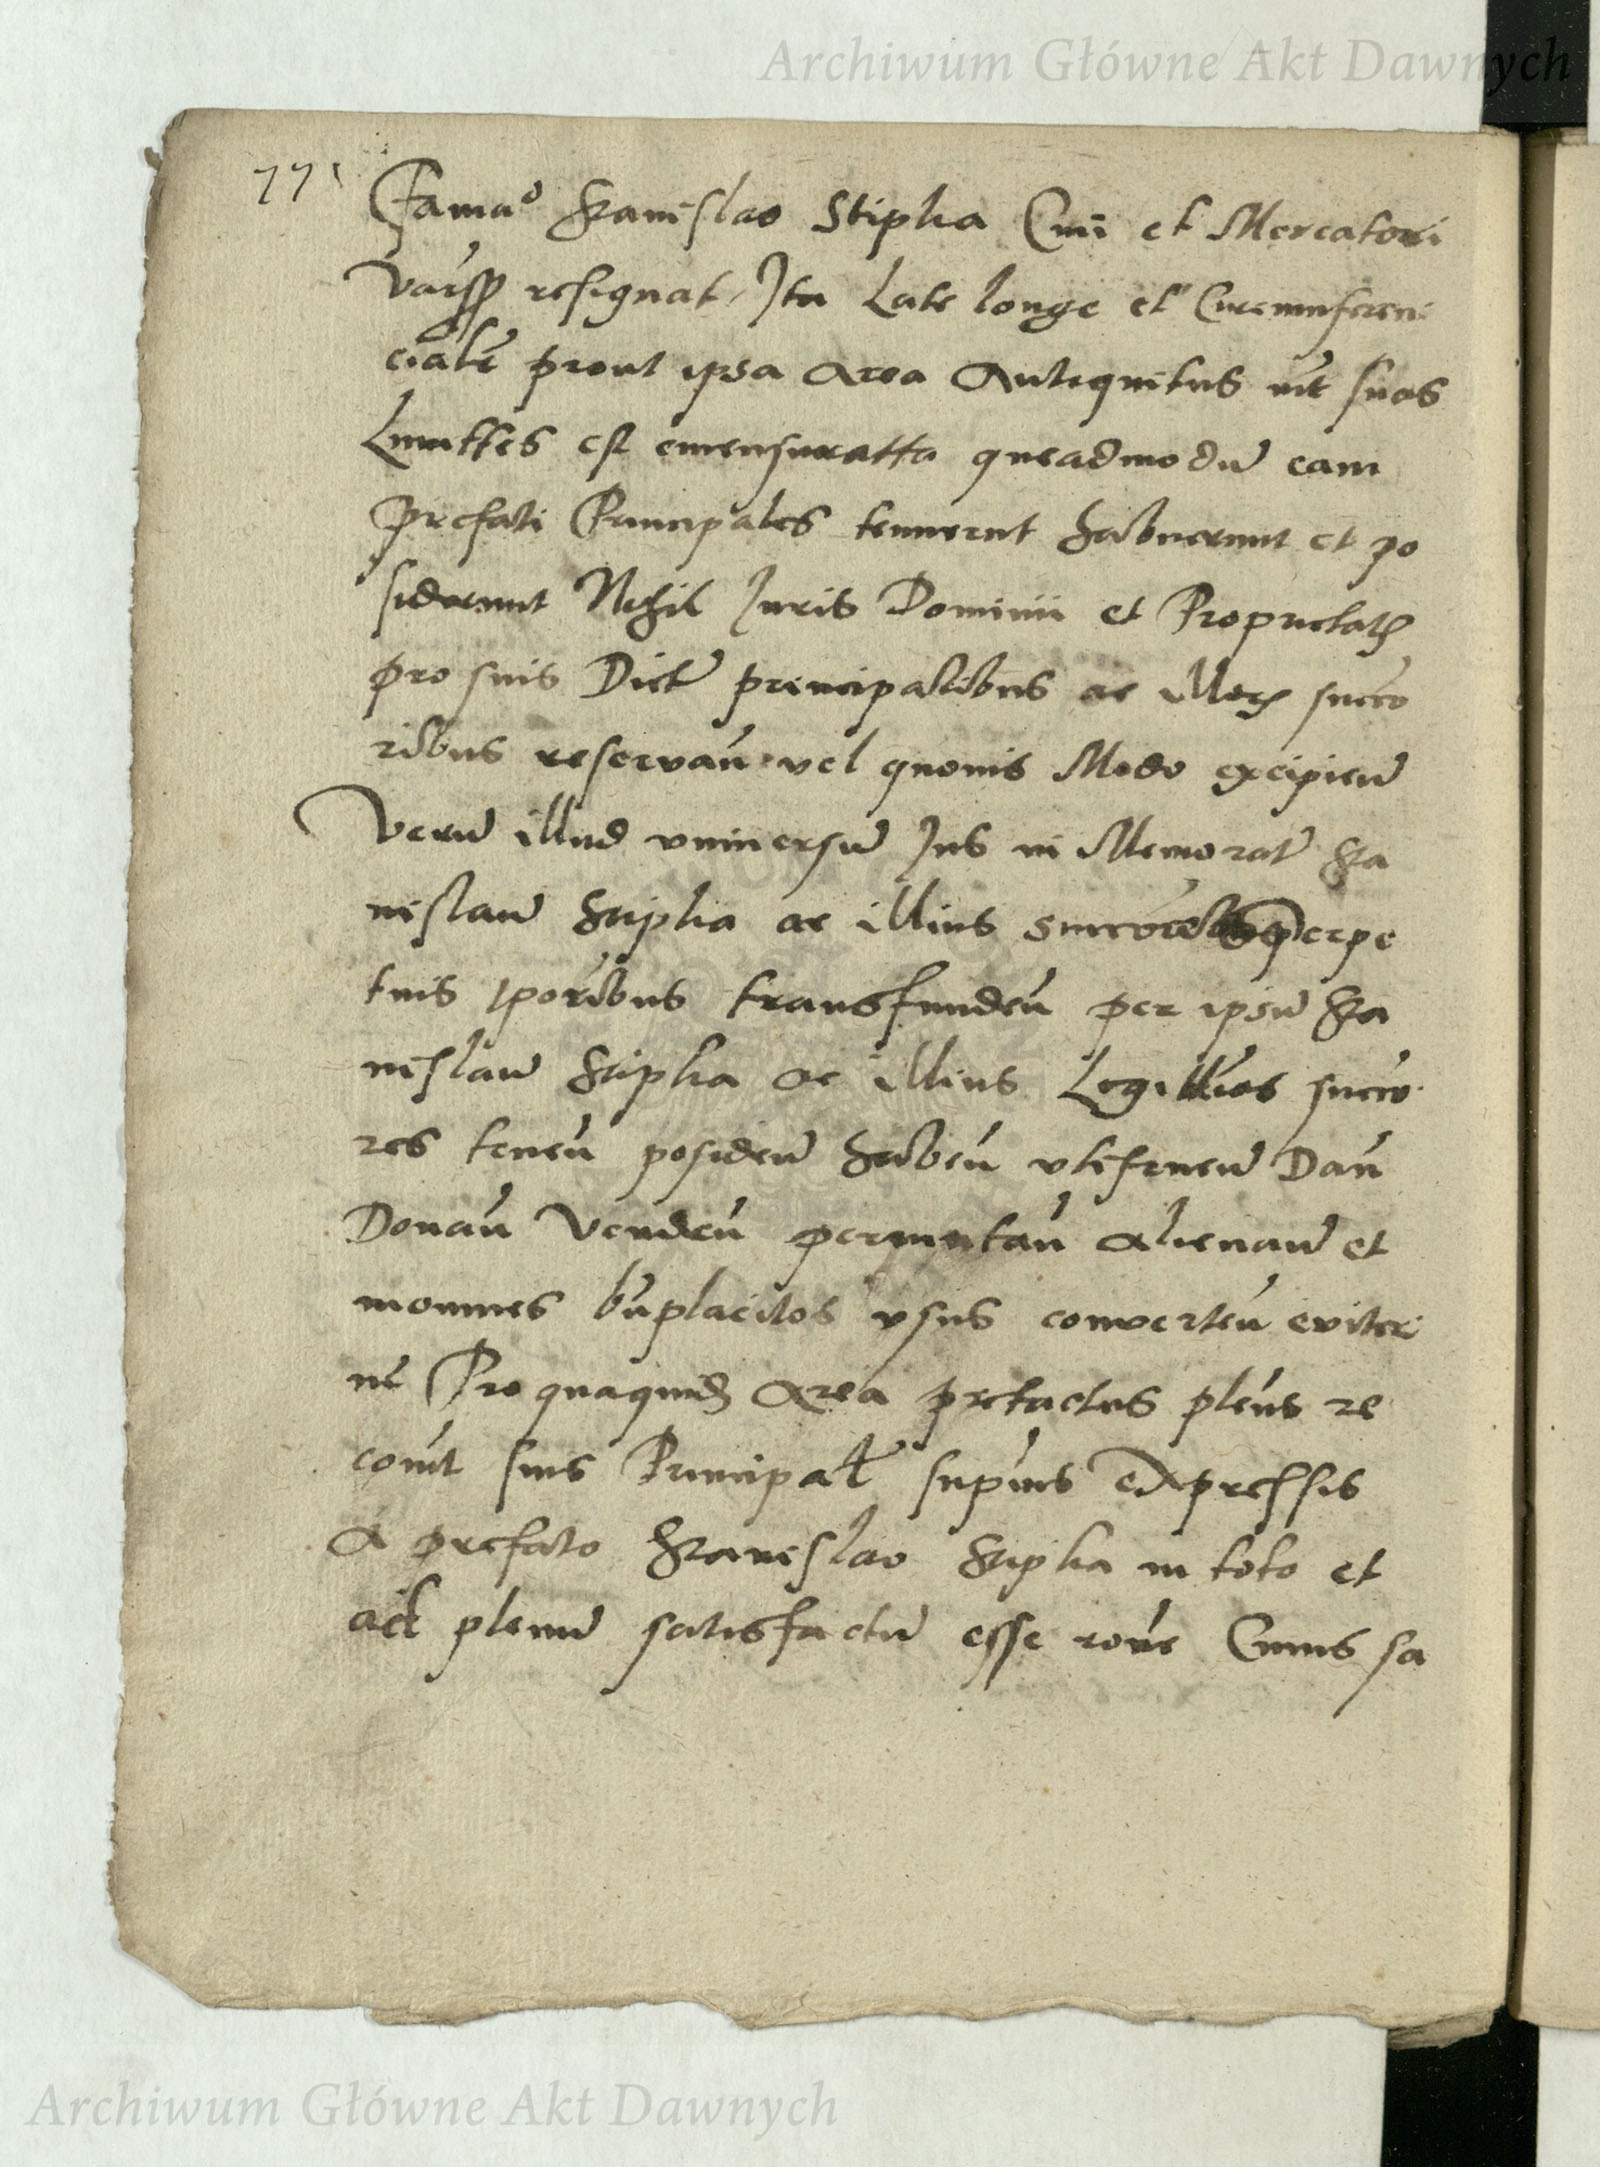 Archiwum Główne Akt Dawnych
771
Famaᵒ Stanislao Stipka Ciui et Mercatori
resignat Ita Late longe et Circumferen
cialr prout ipsa Area Antiquitus int suos
Limittes est emensuratta queadmodū eam
prefati Principales tenuerut habuerunt et po
siderunt Nihil Iuris Dominii et Proprietatꝭ
pro suis Dictꝭ principalibus ac illorꝫ succo
ribus reservan̄ vel quouis Modo excipien̄
Verū illud vniuersū Ius in Memoratū Sta
nislaū Stipka ac illius perpe
tuis tp̄oribus transfunden̄ per ipsū Sta
nislaū Stipka ac illius Legittīos succo
res tenen̄ posiden̄ haben̄ vtifruen̄ Dan̄
Donan̄ Venden̄ permutan̄ Alienan̄ et
inomnes bn̄placitos vsus converten̄ eviter
nē Pro quaquidꝫ Area pretactus plen̄s re
cou̇it suis Principal̄ supius Expressis
A prefato Stanislao Stipka in toto et
ad plenū satisfactū esse Cuius sa
Archiwum Główne Akt Dawnych